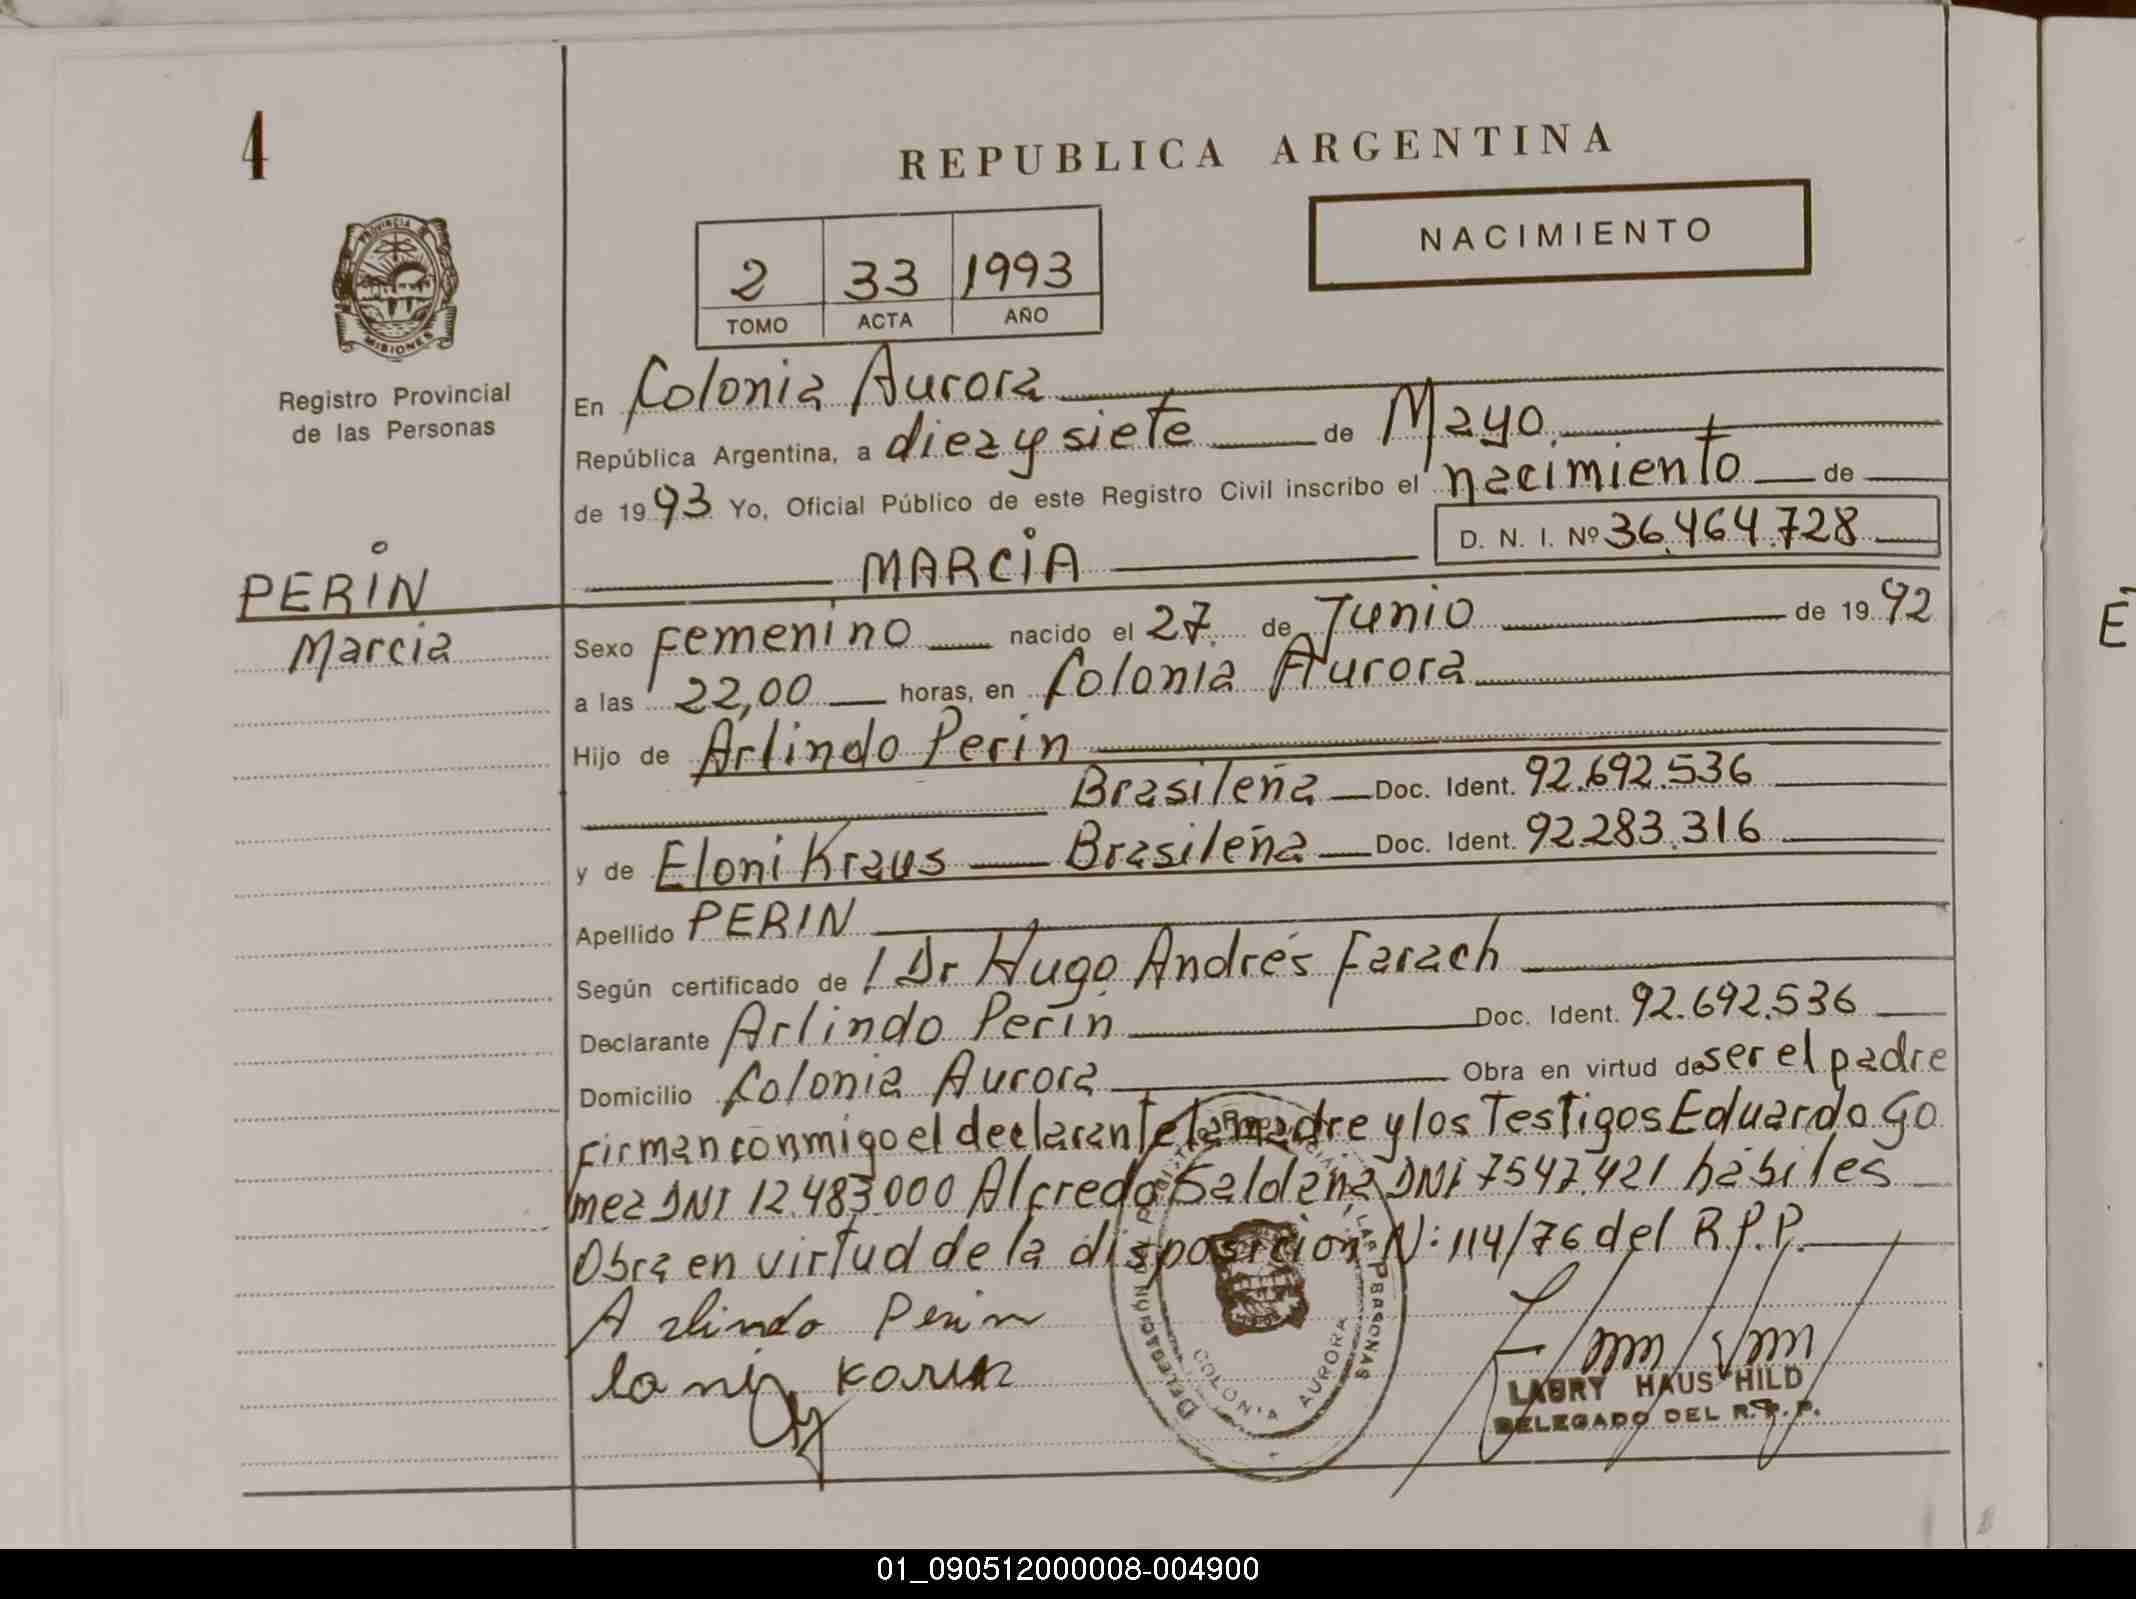 4
REPUBLICA ARGENTINA
NACIMIENTO
2 33 1993
TOMO ACTA AÑO
PROVINCIA DE
MISIONES
Registro Provincial
de las Personas
PERIN
Marcia
En Colonia Aurora
República Argentina, a diez y siete de Mayo
de 1993 Yo, Oficial Público de este Registro Civil inscribo el nacimiento de
D. N. I. Nº 36.464.728
MARCIA
Sexo Femenino nacido el 27 de Junio de 1992
a las 22,00 horas, en Colonia Aurora
Hijo de Arlindo Perin
Brasileña Doc. Ident. 92.692.536
y de Eloni Kraus Brasileña Doc. Ident. 92.283.316
Apellido PERIN
Según certificado de Dr Hugo Andrés Farach
Declarante Arlindo Perin Doc. Ident. 92.692.536
Domicilio Colonia Aurora Obra en virtud de ser el padre
Firman conmigo el declarante la madre y los Testigos Eduardo Go
mez DNI 12.483.000 Alfredo Saldaña DNI 7547.421 hábiles
Obra en virtud de la disposición N: 114/76 del R.P.P.
Arlindo Perin
COLONIA AURORA
LAURY HAUSCHILD
DELEGADO DEL R.P.P.
E
01_090512000008-004900